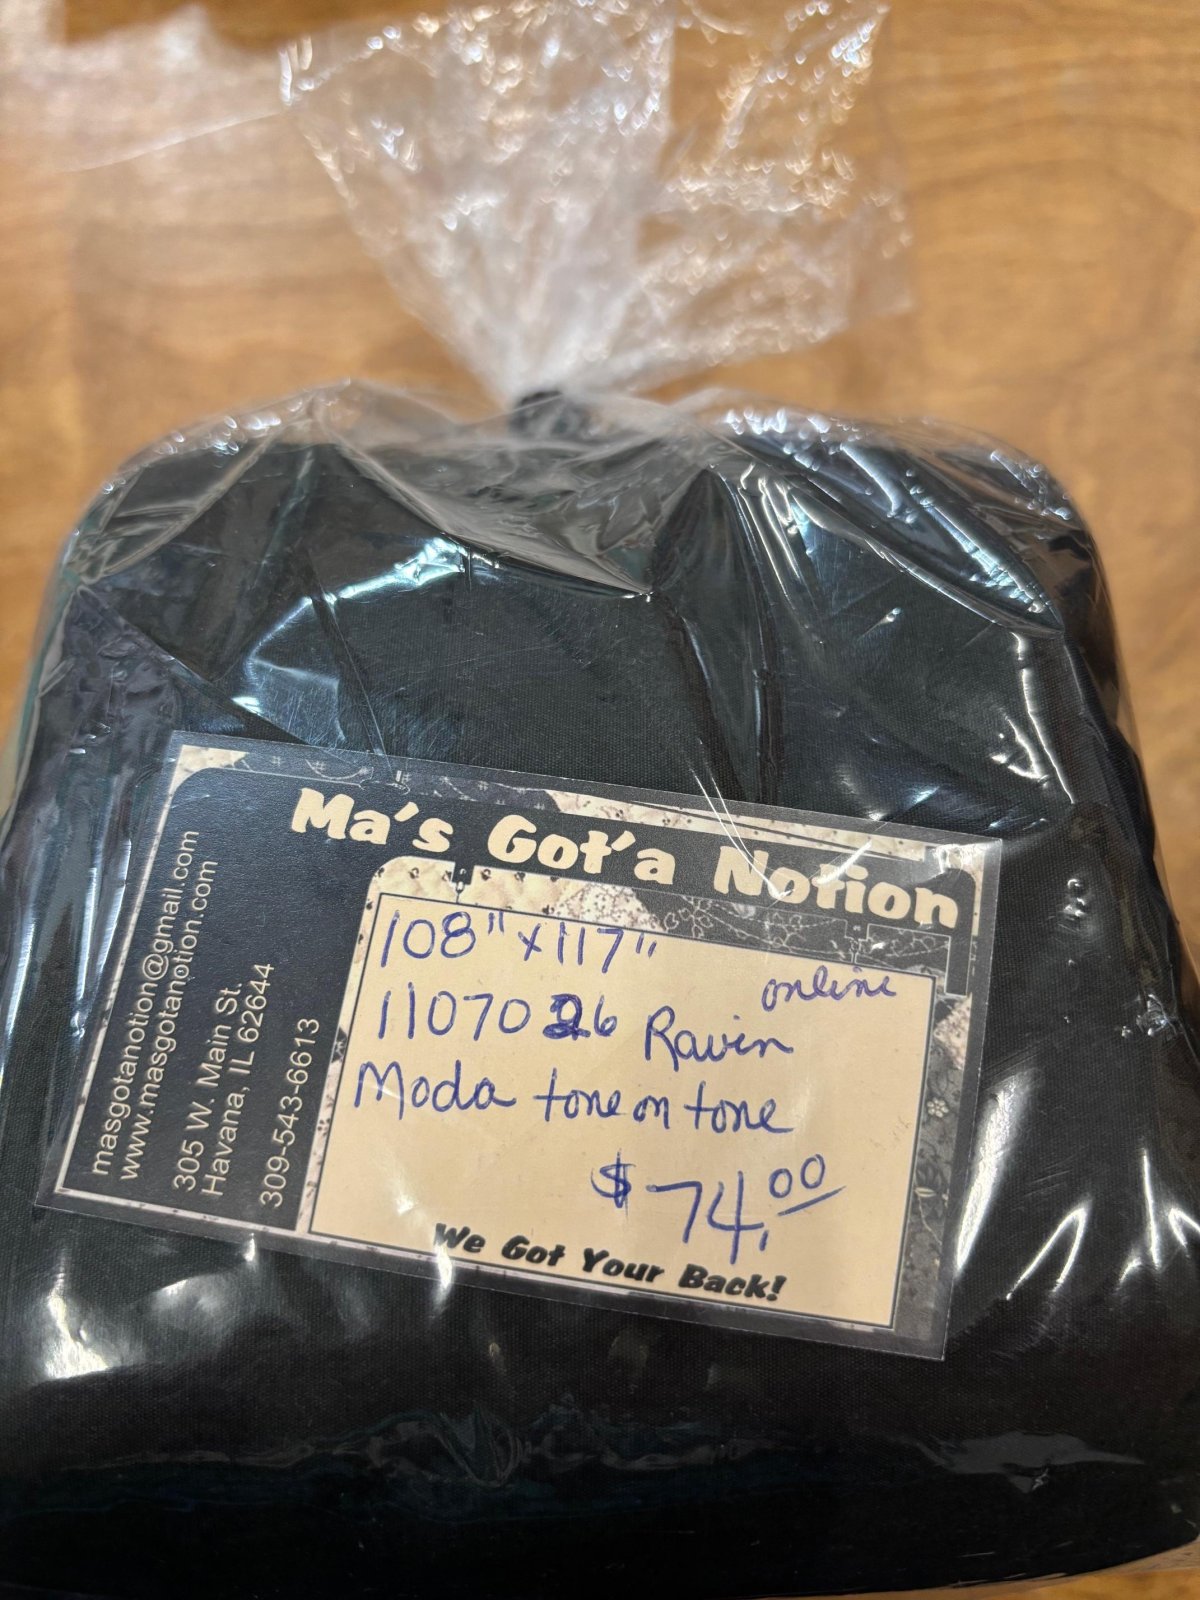 Ma's Got'a Notion
masgotanotion@gmail.com
www.masgotanotion.com
305 W. Main St.
Havana, IL 62644
309-543-6613
108" x 117"
online
11070 26 Raven
Moda tone on tone
$74.00
We Got Your Back!